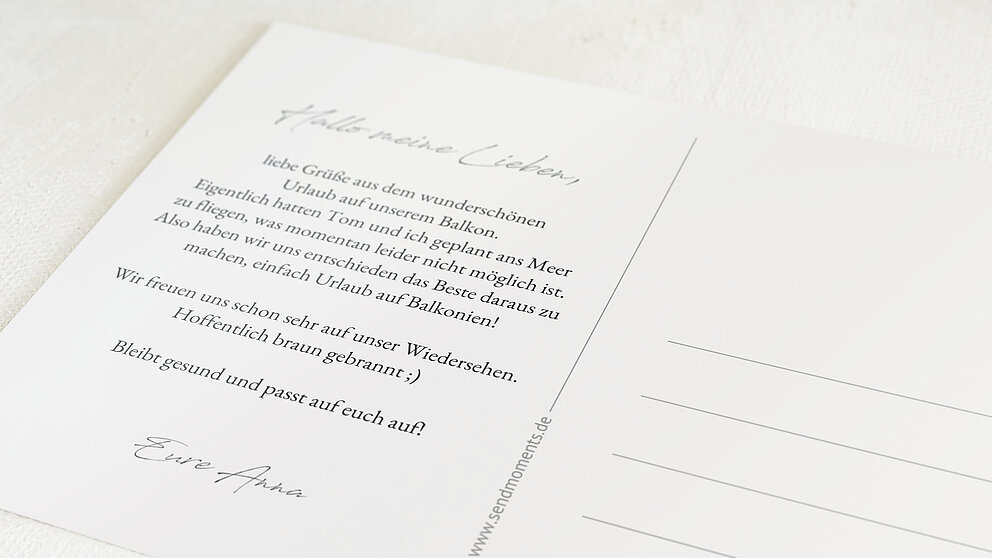 Hallo meine Lieben,
liebe Grüße aus dem wunderschönen
Urlaub auf unserem Balkon.
Eigentlich hatten Tom und ich geplant ans Meer
zu fliegen, was momentan leider nicht möglich ist.
Also haben wir uns entschieden das Beste daraus zu
machen, einfach Urlaub auf Balkonien!
Wir freuen uns schon sehr auf unser Wiedersehen.
Hoffentlich braun gebrannt ;)
Bleibt gesund und passt auf euch auf!
Eure Anna
www.sendmoments.de